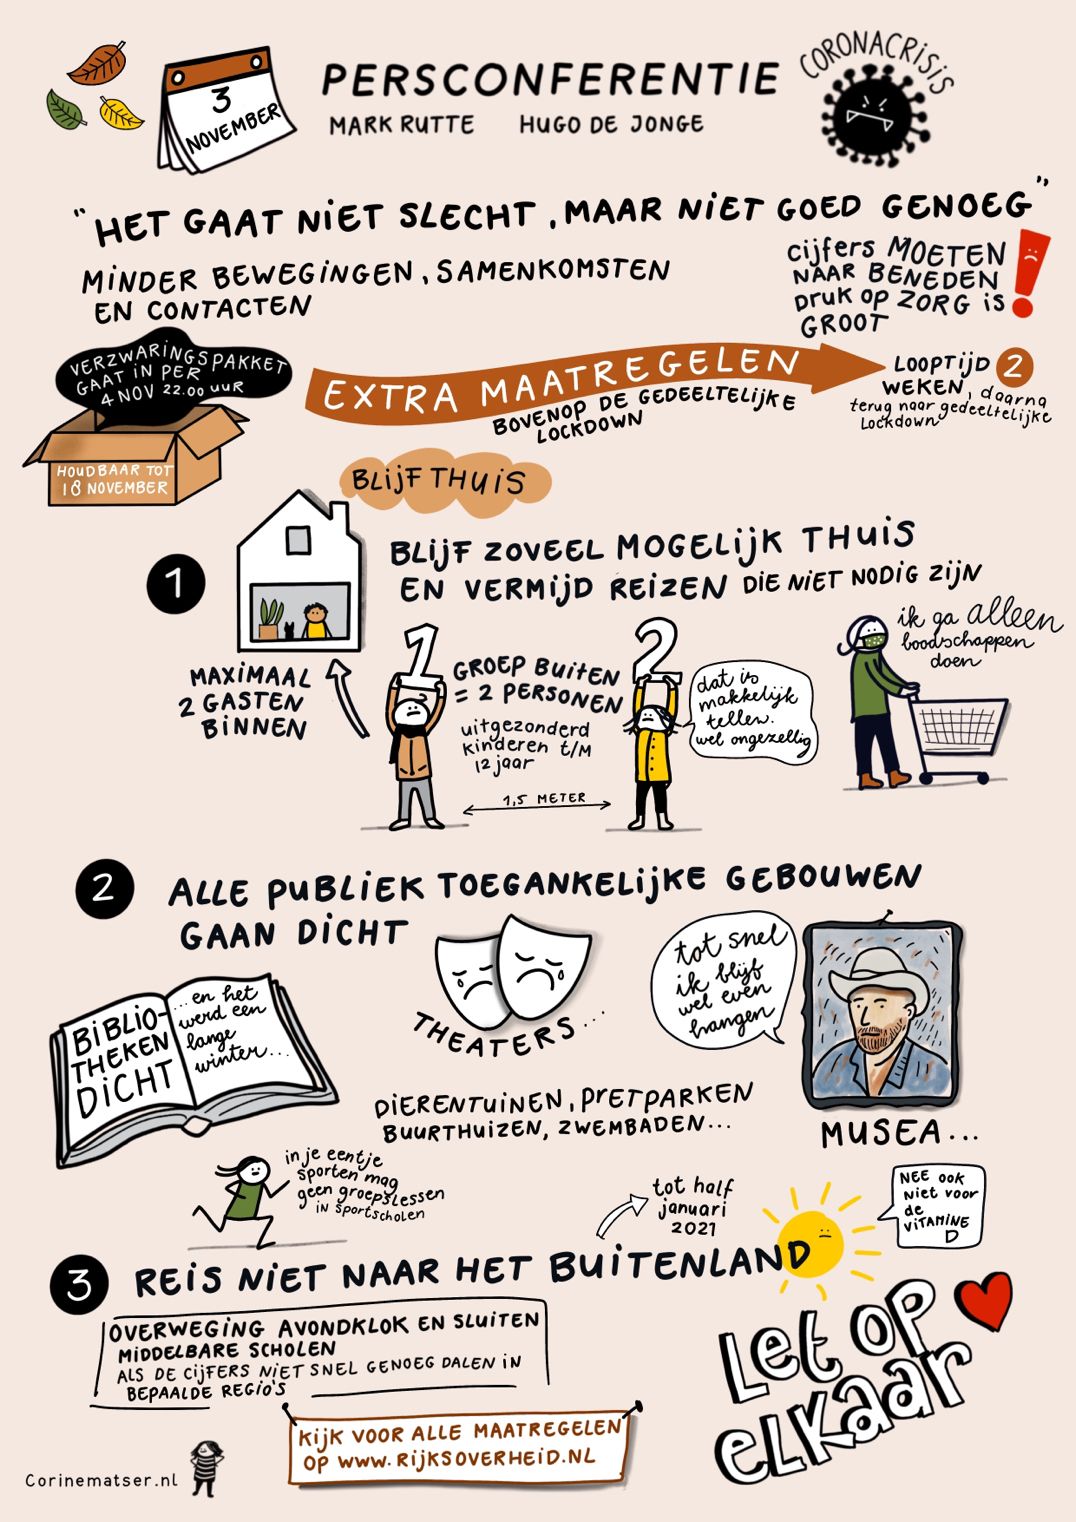 3
NOVEMBER
PERSCONFERENTIE
MARK RUTTE HUGO DE JONGE
CORONACRISIS
"HET GAAT NIET SLECHT, MAAR NIET GOED GENOEG"
MINDER BEWEGINGEN, SAMENKOMSTEN
EN CONTACTEN
cijfers MOETEN
NAAR BENEDEN
DRUK OP ZORG IS
GROOT
VERZWARINGSPAKKET
GAAT IN PER
4 NOV 22.00 UUR
HOUDBAAR TOT
18 NOVEMBER
EXTRA MAATREGELEN
BOVENOP DE GEDEELTELIJKE
LOCKDOWN
LOOPTIJD 2
WEKEN, daarna
terug naar gedeeltelijke
Lockdown
BLIJF THUIS
1
BLIJF ZOVEEL MOGELIJK THUIS
EN VERMIJD REIZEN DIE NIET NODIG ZIJN
MAXIMAAL
2 GASTEN
BINNEN
1
GROEP BUITEN
= 2 PERSONEN
uitgezonderd
kinderen t/m
12 jaar
1,5 METER
2
dat is
makkelijk
tellen.
wel ongezellig
ik ga alleen
boodschappen
doen
2
ALLE PUBLIEK TOEGANKELIJKE GEBOUWEN
GAAN DICHT
BIBLIO-
THEKEN
DICHT
...en het
werd een
lange
winter...
THEATERS...
tot snel
ik blijf
wel even
hangen
MUSEA...
DIERENTUINEN, PRETPARKEN
BUURTHUIZEN, ZWEMBADEN...
in je eentje
sporten mag
geen groepslessen
in sportscholen
tot half
januari
2021
NEE OOK
niet voor
de
VITAMINE
D
3
REIS NIET NAAR HET BUITENLAND
OVERWEGING AVONDKLOK EN SLUITEN
MIDDELBARE SCHOLEN
ALS DE CIJFERS NIET SNEL GENOEG DALEN IN
BEPAALDE REGIO'S
Let op
elkaar
KIJK VOOR ALLE MAATREGELEN
OP WWW.RIJKSOVERHEID.NL
Corinematser.nl